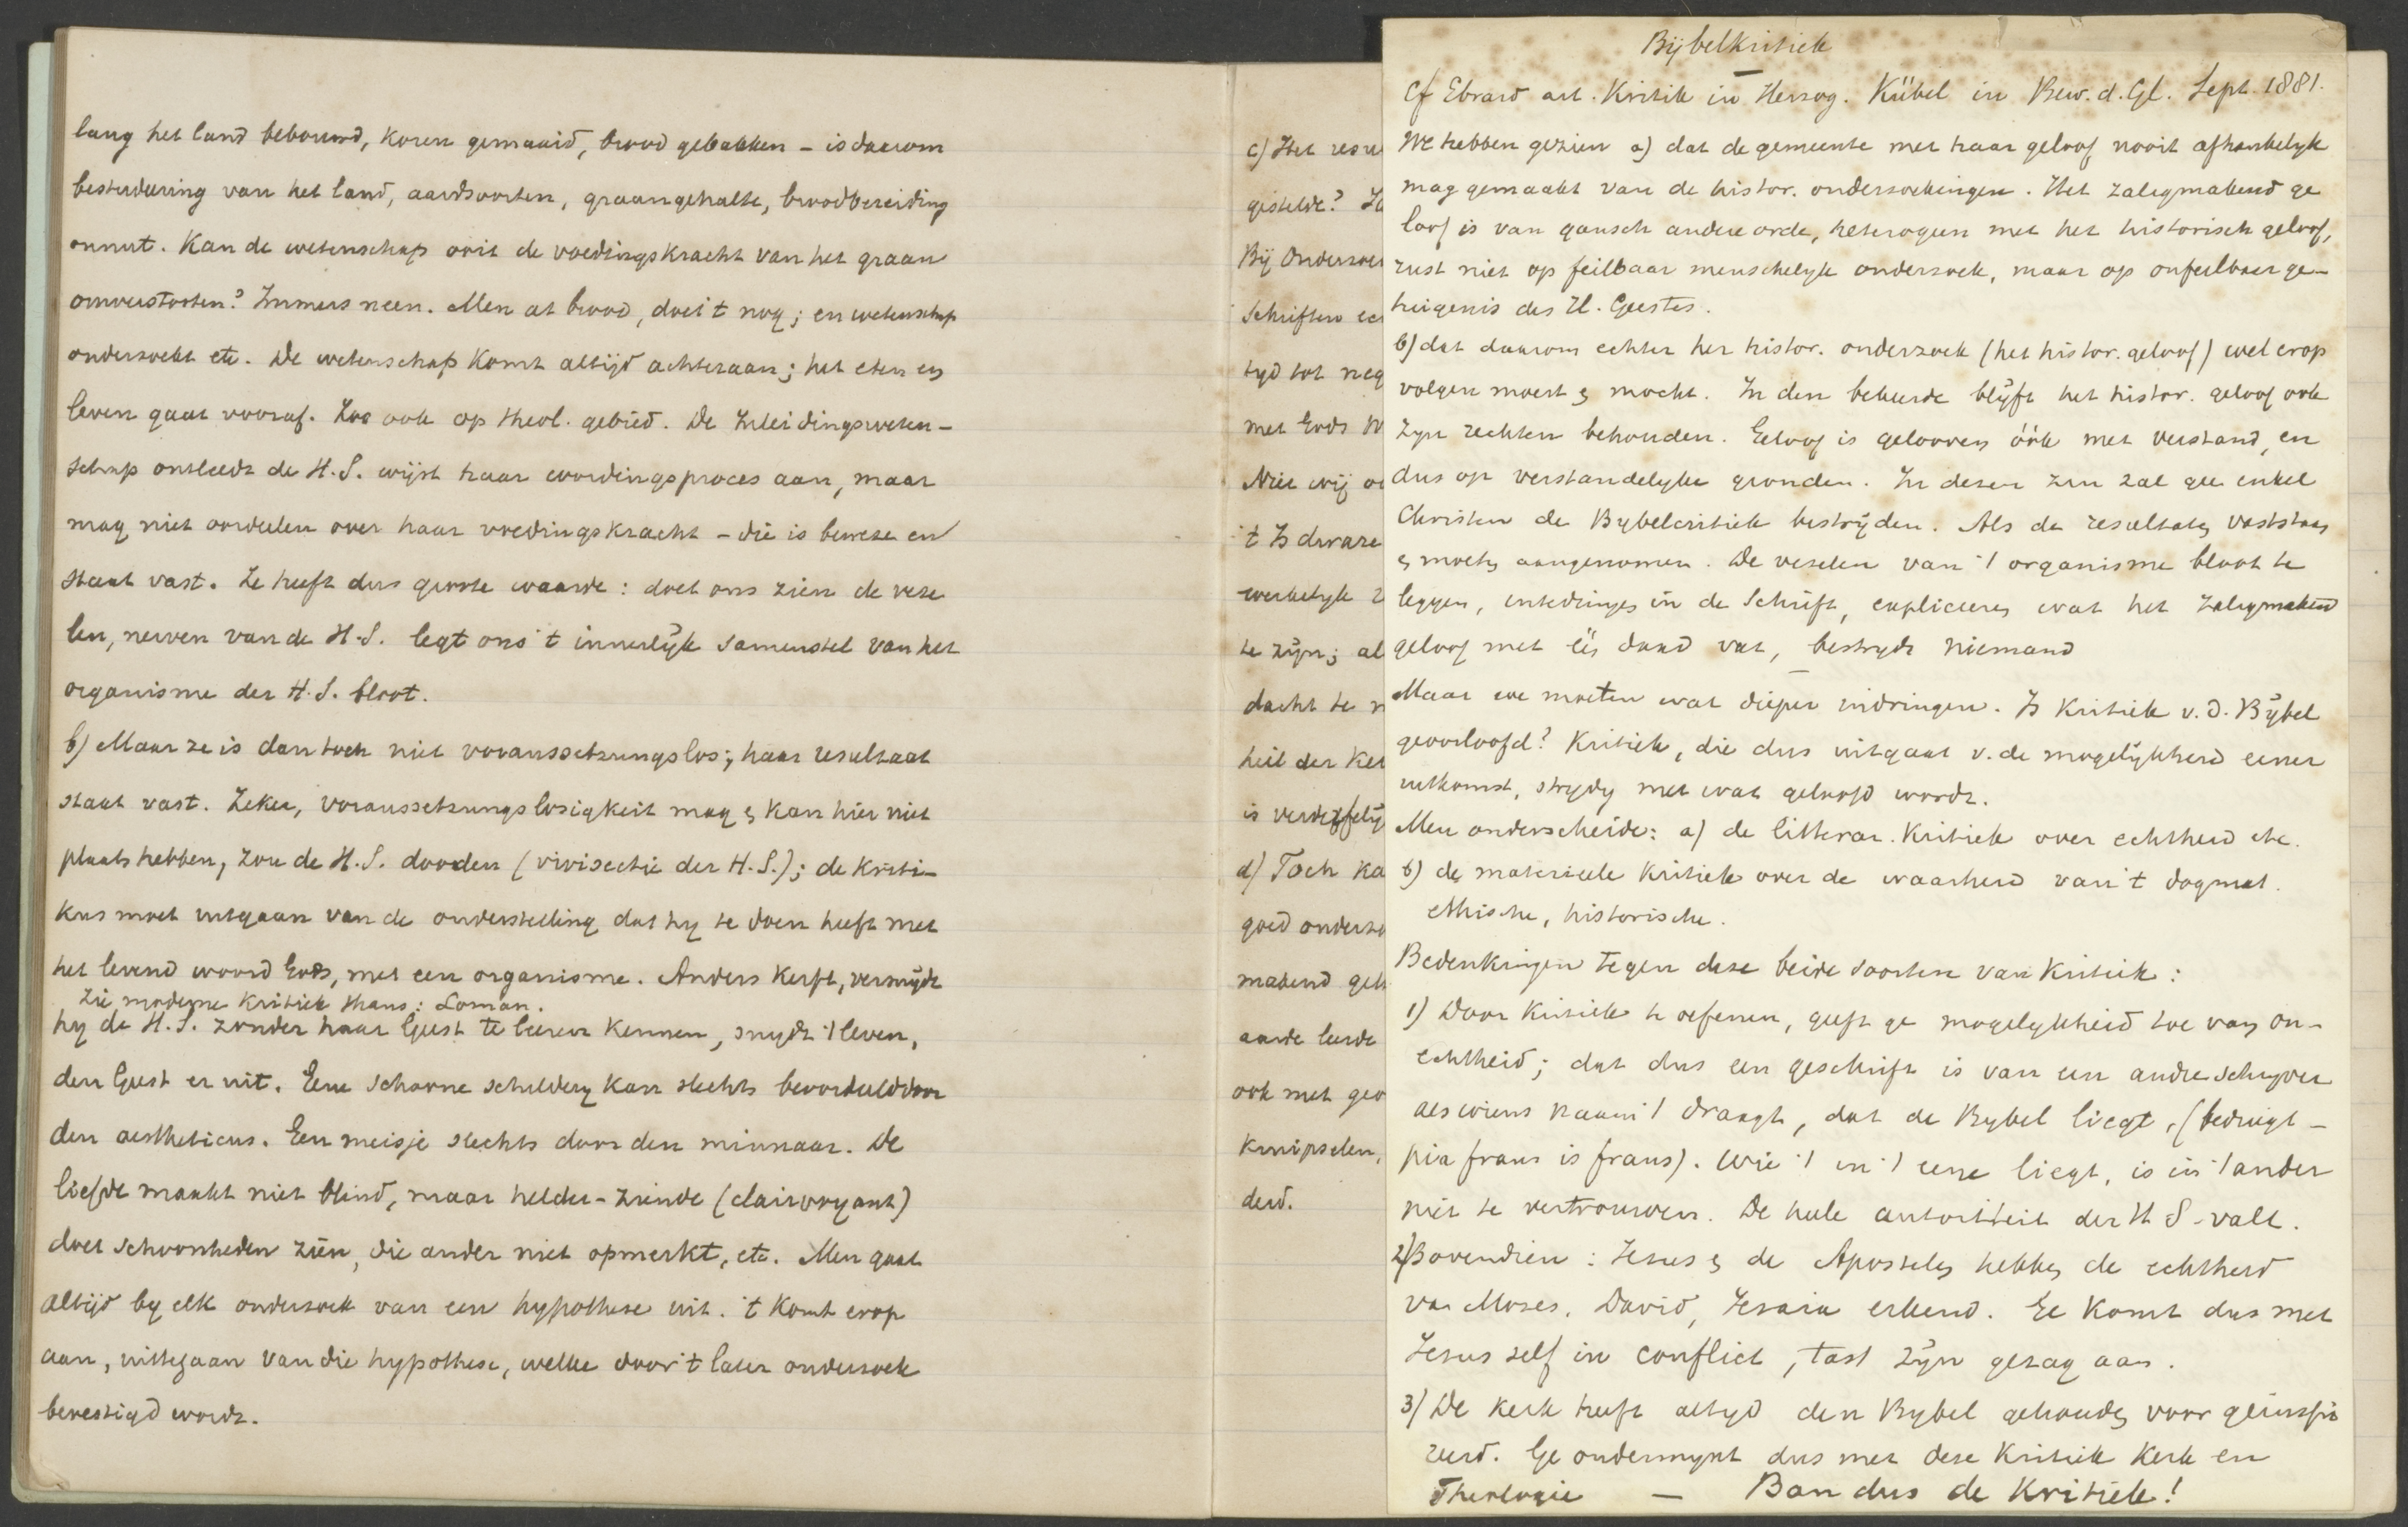 lang het land bebouwd, koren gemaaid, brood gebakken – is daarom
bestudeering van het land, aardsoorten, graangehalte, broodbereiding
onnut. Kan de wetenschap ooit de voedingskracht van het graan
omverstooten? Immers neen. Men at brood, doet 't nog; en wetenschap
onderzoekt etc. De wetenschap komt altijd achteraan; het eten en
leven gaat vooraf. Zoo ook op theol. gebied. De Inleidingsweten-
schap ontleedt de H.S. wijst haar wordingsproces aan, maar
mag niet oordeelen over haar voedingskracht – die is bewezen en
staat vast. Ze heeft dus groote waarde: doet ons zien de veze
len, nerven van de H.S. legt ons 't innerlijk samenstel van het
organisme der H.S. bloot.
b) Maar ze is dan toch niet voraussetzungslos; haar resultaat
staat vast. Zeker, voraussetzungslosigkeit mag & kan hier niet
plaats hebben, zou de H.S. dooden (vivisectie der H.S.); de kriti-
kus moet uitgaan van de onderstelling dat hy te doen heeft met
het levend woord Gods, met een organisme. Anders kerft, versnijdt
Zie moderne kritiek thans: Loman.
hy de H.S. zonder haar Geest te leeren kennen, snydt 't leven,
den Geest er uit. Eene schoone schildery kan slechts beoordeeld door
den aestheticus. Een meisje slechts door den minnaar. De
liefde maakt niet blind, maar helder-ziende (clairvoyant)
doet schoonheden zien, die ander niet opmerkt, etc. Men gaat
altijd by elk onderzoek van een hypothese uit. 't Komt erop
aan, uittegaan van die hypothese, welke door 't later onderzoek
bevestigd wordt.
c) Het resu
gestelde?
Bij Onderzoe
Schriften ee
tyd tot neg
met Gods W
Niet wij
't Is dwaze
werkelyk
te zijn; al
dacht te
heil der Ker
is verderfelij
d) Toch ka
goed onderzo
makend gel
aarde leerde
ook met geo
Knipselen,
derd.
Bijbelkritiek
Cf Ebrard art. Kritik in Herzog. Kübel in Bew. d. Gl. Sept. 1881.
We hebben gezien a) dat de gemeente met haar geloof nooit afhankelyk
mag gemaakt van de histor. onderzoekingen. Het zaligmakend ge
loof is van gansch andere orde, heterogeen met het historisch geloof,
rust niet op feilbaar menschelyk onderzoek, maar op onfeilbaar ge-
tuigenis des H. Geestes.
b) dat daarom echter het histor. onderzoek (het histor. geloof) wel erop
volgen moest & mocht. In den bekeerde blijft het histor. geloof ook
zyn rechten behouden. Geloof is gelooven óók met verstand, en
dus op verstandelyke gronden. In dezen zin zal gee enkel
Christen de Bybelcritiek bestrijden. Als de resultaten vaststaan
& moeten aangenomen. De vezelen van 't organisme bloot te
leggen, intedringen in de Schrift, expliceeren wat het zaligmakend
geloof met één daad vat, bestrydt niemand
Maar we moeten wat dieper indringen. Is Kritiek v.d. Bijbel
geoorloofd? Kritiek, die dus uitgaat v. de mogelijkheid eener
uitkomst, strydig met wat geloofd wordt.
Men onderscheide: a) de litterar. Kritiek over echtheid etc.
b) de materieele Kritiek over de waarheid van 't dogmat.
ethische, historische.
Bedenkingen tegen deze beide soorten van Kritiek:
1) Door Kritiek te oefenen, geeft ge mogelykheid toe van on-
echtheid; dat dus een geschrift is van een andre schryver
als wiens naam 't draagt, dat de Bybel liegt, (bedriegt –
pia fraus is fraus). Wie 't in 't eene liegt, is in 't ander
niet te vertrouwen. De heele autoriteit der H S. valt.
2) Bovendien: Jezus & de Apostelen hebben de echtheid
van Moses, David, Jesaia erkend. Ge komt dus met
Jezus zelf in conflict, tast zijn gezag aan.
3) De kerk heeft altyd den Bybel gehouden voor geïnspi
reerd. Ge ondermynt dus met deze Kritiek Kerk en
Theologie — Ban dus de Kritiek!